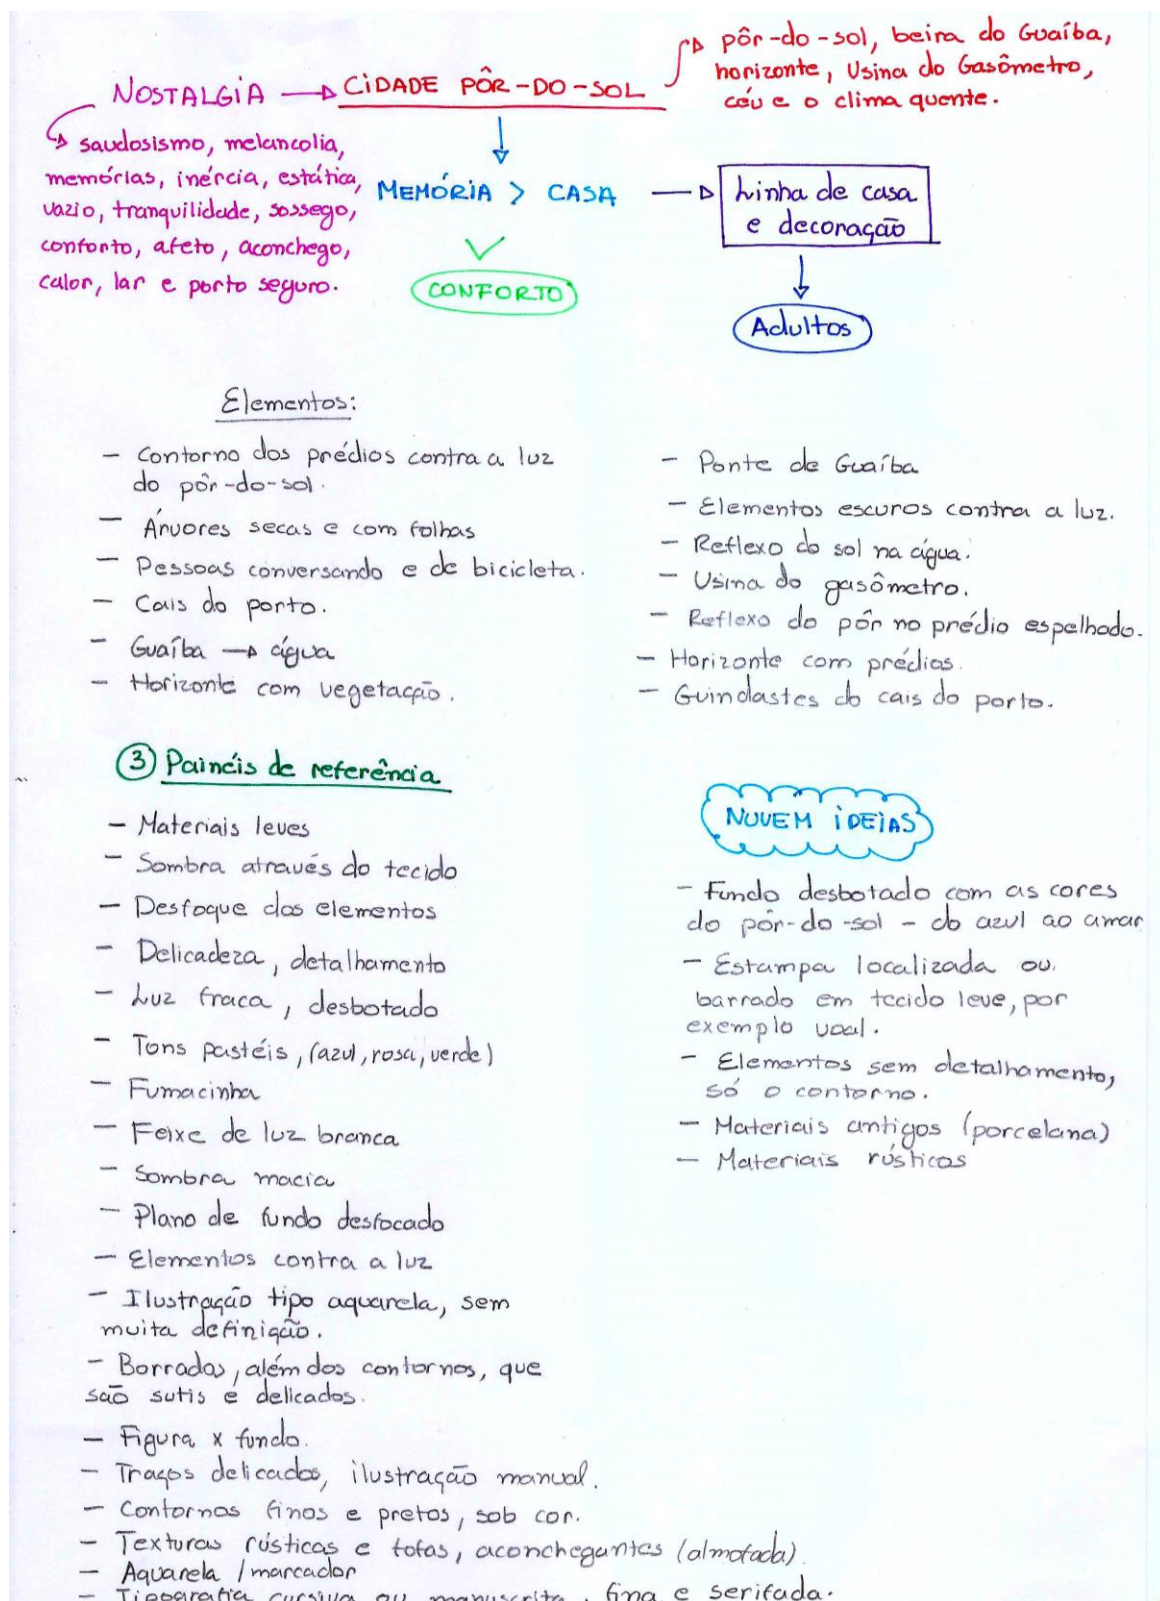 NOSTALGIA → CIDADE PÔR-DO-SOL
pôr-do-sol, beira do Guaíba,
horizonte, Usina do Gasômetro,
céu e o clima quente.
saudosismo, melancolia,
memórias, inércia, estática,
vazio, tranquilidade, sossego,
conforto, afeto, aconchego,
calor, lar e porto seguro.
MEMÓRIA > CASA
CONFORTO
Linha de casa
e decoração
Adultos
Elementos:
- Contorno dos prédios contra a luz
do pôr-do-sol.
- Árvores secas e com folhas
- Pessoas conversando e de bicicleta.
- Cais do porto.
- Guaíba → água
- Horizonte com vegetação.
- Ponte de Guaíba
- Elementos escuros contra a luz.
- Reflexo do sol na água.
- Usina do gasômetro.
- Reflexo do pôr no prédio espelhado.
- Horizonte com prédios.
- Guindastes do cais do porto.
3 Painéis de referência
- Materiais leves
- Sombra através do tecido
- Desfoque dos elementos
- Delicadeza, detalhamento
- Luz fraca, desbotado
- Tons pastéis, (azul, rosa, verde)
- Fumacinha
- Feixe de luz branca
- Sombra macia
- Plano de fundo desfocado
- Elementos contra a luz
- Ilustração tipo aquarela, sem
muita definição.
- Borrados, além dos contornos, que
são sutis e delicados.
- Figura x fundo.
- Traços delicados, ilustração manual.
- Contornos finos e pretos, sob cor.
- Texturas rústicas e fofas, aconchegantes (almofada).
- Aquarela / marcador
- Tipografia cursiva ou manuscrita, fina e serifada.
NUVEM IDEIAS
- Fundo desbotado com as cores
do pôr-do-sol - do azul ao amar
- Estampa localizada ou
barrado em tecido leve, por
exemplo voal.
- Elementos sem detalhamento,
só o contorno.
- Materiais antigos (porcelana)
- Materiais rústicos